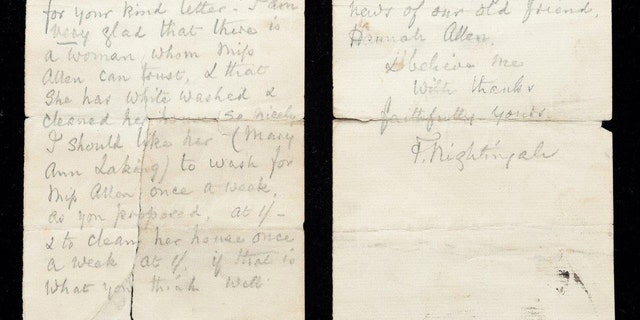 for your kind letter. I am
very glad that there is
a woman, whom Miss
Allen can trust, & that
She has white washed &
cleaned her house so nicely
I should like her (Mary
Ann Laking) to wash for
Miss Allen once a week,
as you proposed, at 1/-
& to clean her house once
a week at 1/. if that is
what you think well
news of our old friend,
Hannah Allen.
& believe me
with thanks
faithfully yours
F. Nightingale